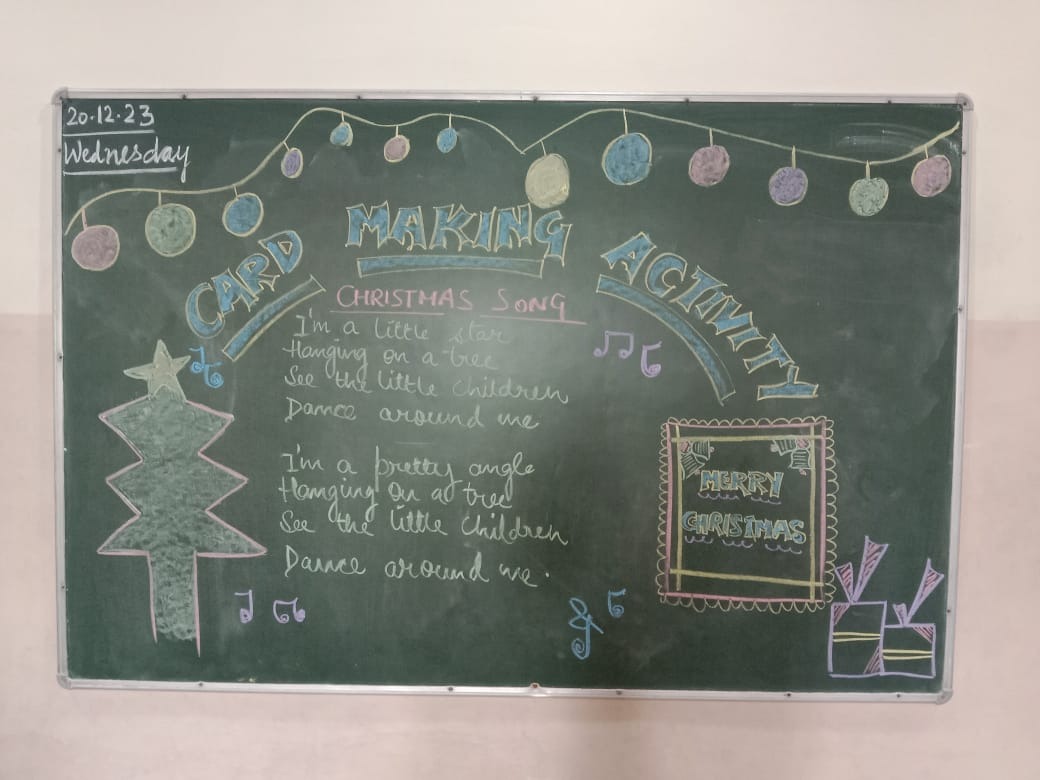 20.12.23
Wednesday
CARD MAKING ACTIVITY
CHRISTMAS SONG
I'm a little star
Hanging on a tree
See the little children
Dance around me
I'm a pretty angle
Hanging on a tree
See the little children
Dance around me.
MERRY
CHRISTMAS